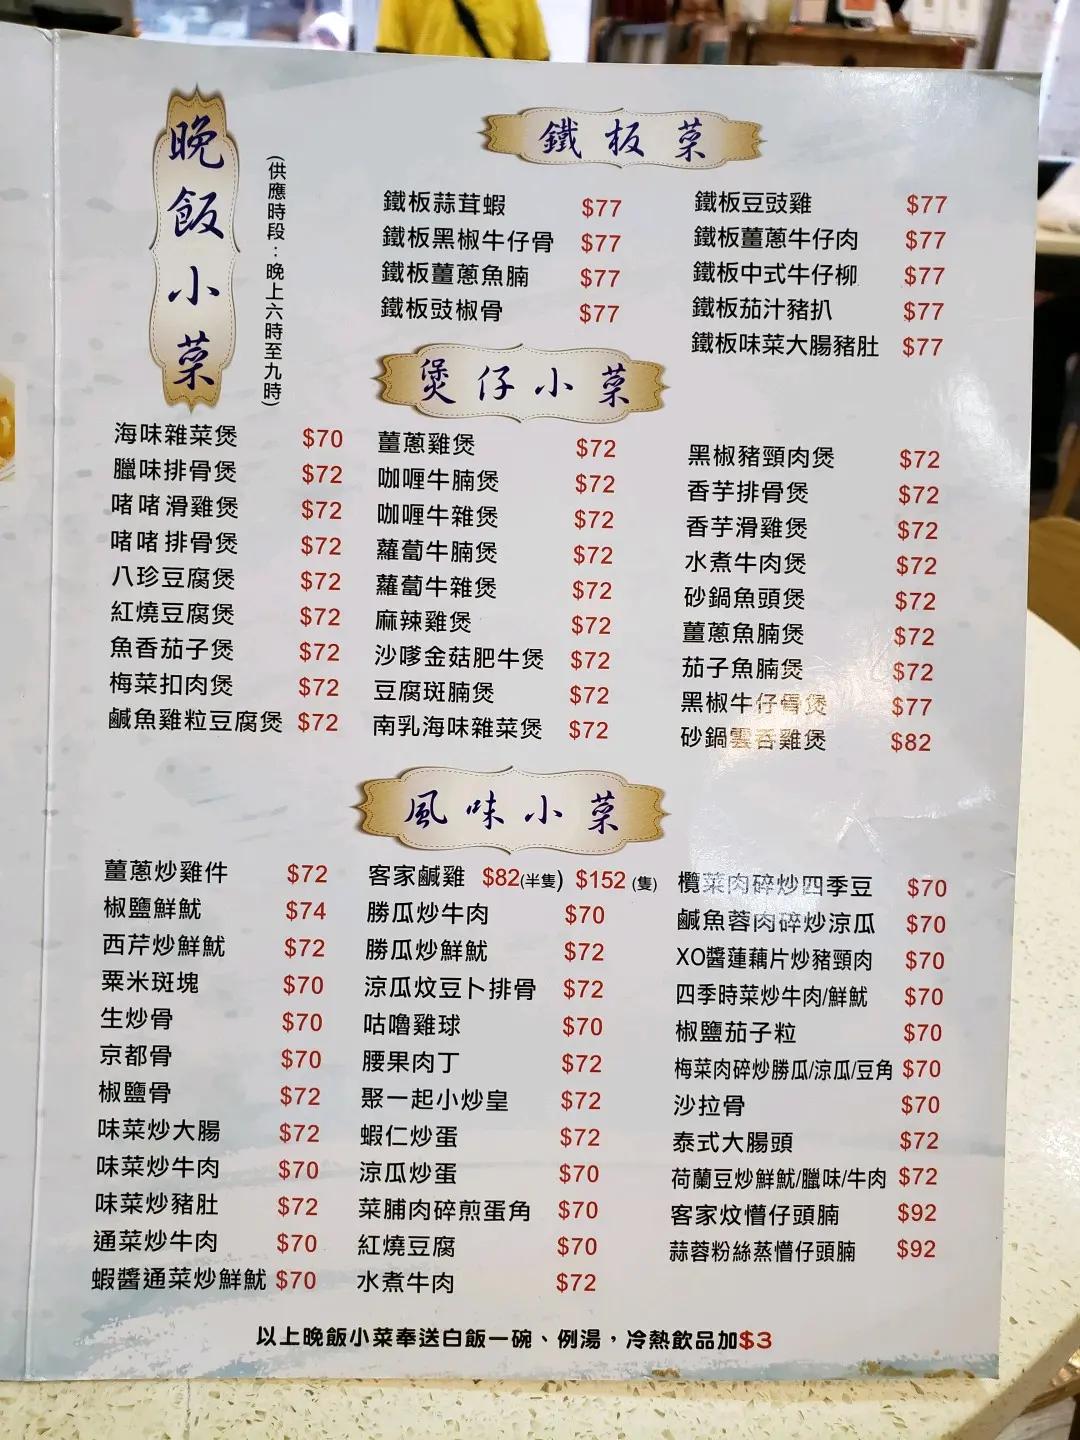 晚飯小菜
(供應時段：晚上六時至九時)
鐵板菜
鐵板蒜茸蝦 $77
鐵板黑椒牛仔骨 $77
鐵板薑蔥魚腩 $77
鐵板豉椒骨 $77
鐵板豆豉雞 $77
鐵板薑蔥牛仔肉 $77
鐵板中式牛仔柳 $77
鐵板茄汁豬扒 $77
鐵板味菜大腸豬肚 $77
煲仔小菜
海味雜菜煲 $70
臘味排骨煲 $72
啫啫滑雞煲 $72
啫啫排骨煲 $72
八珍豆腐煲 $72
紅燒豆腐煲 $72
魚香茄子煲 $72
梅菜扣肉煲 $72
鹹魚雞粒豆腐煲 $72
薑蔥雞煲 $72
咖喱牛腩煲 $72
咖喱牛雜煲 $72
蘿蔔牛腩煲 $72
蘿蔔牛雜煲 $72
麻辣雞煲 $72
沙嗲金菇肥牛煲 $72
豆腐斑腩煲 $72
南乳海味雜菜煲 $72
黑椒豬頸肉煲 $72
香芋排骨煲 $72
香芋滑雞煲 $72
水煮牛肉煲 $72
砂鍋魚頭煲 $72
薑蔥魚腩煲 $72
茄子魚腩煲 $72
黑椒牛仔骨煲 $77
砂鍋雲吞雞煲 $82
風味小菜
薑蔥炒雞件 $72
椒鹽鮮魷 $74
西芹炒鮮魷 $72
粟米斑塊 $70
生炒骨 $70
京都骨 $70
椒鹽骨 $72
味菜炒大腸 $72
味菜炒牛肉 $70
味菜炒豬肚 $72
通菜炒牛肉 $70
蝦醬通菜炒鮮魷 $70
客家鹹雞 $82(半隻) $152 (隻)
勝瓜炒牛肉 $70
勝瓜炒鮮魷 $72
涼瓜炆豆卜排骨 $72
咕嚕雞球 $70
腰果肉丁 $72
聚一起小炒皇 $72
蝦仁炒蛋 $72
涼瓜炒蛋 $70
菜脯肉碎煎蛋角 $70
紅燒豆腐 $70
水煮牛肉 $72
欖菜肉碎炒四季豆 $70
鹹魚蓉肉碎炒涼瓜 $70
XO醬蓮藕片炒豬頸肉 $70
四季時菜炒牛肉/鮮魷 $70
椒鹽茄子粒 $70
梅菜肉碎炒勝瓜/涼瓜/豆角 $70
沙拉骨 $70
泰式大腸頭 $72
荷蘭豆炒鮮魷/臘味/牛肉 $72
客家炆懵仔頭腩 $92
蒜蓉粉絲蒸懵仔頭腩 $92
以上晚飯小菜奉送白飯一碗、例湯，冷熱飲品加$3